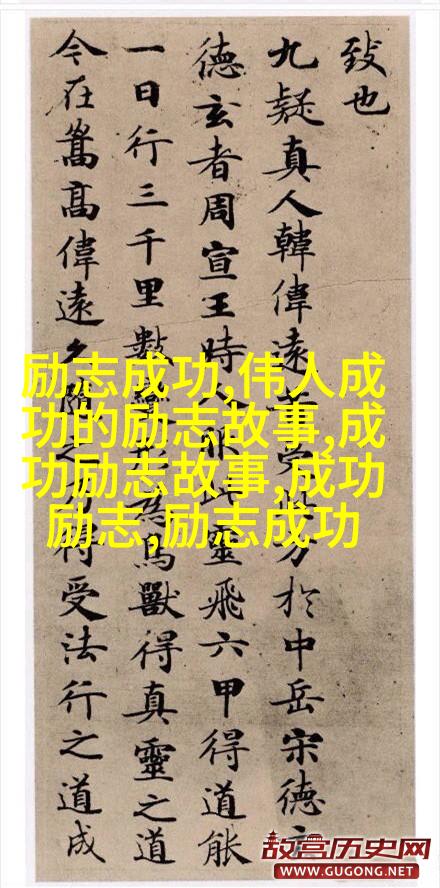 致也
九疑真人韓偉遠昔受此方於中岳宋德玄
德玄者周宣王時人服此靈飛六甲得道能
一日行三千里數變形為鳥獸得真靈之道
今在嵩高偉遠久隨之乃得受法行之道成
励志成功,伟人成
功的励志故事,成
功励志故事,成功
励志,励志成功
故宫历史网
WWW.GUGONG.NET